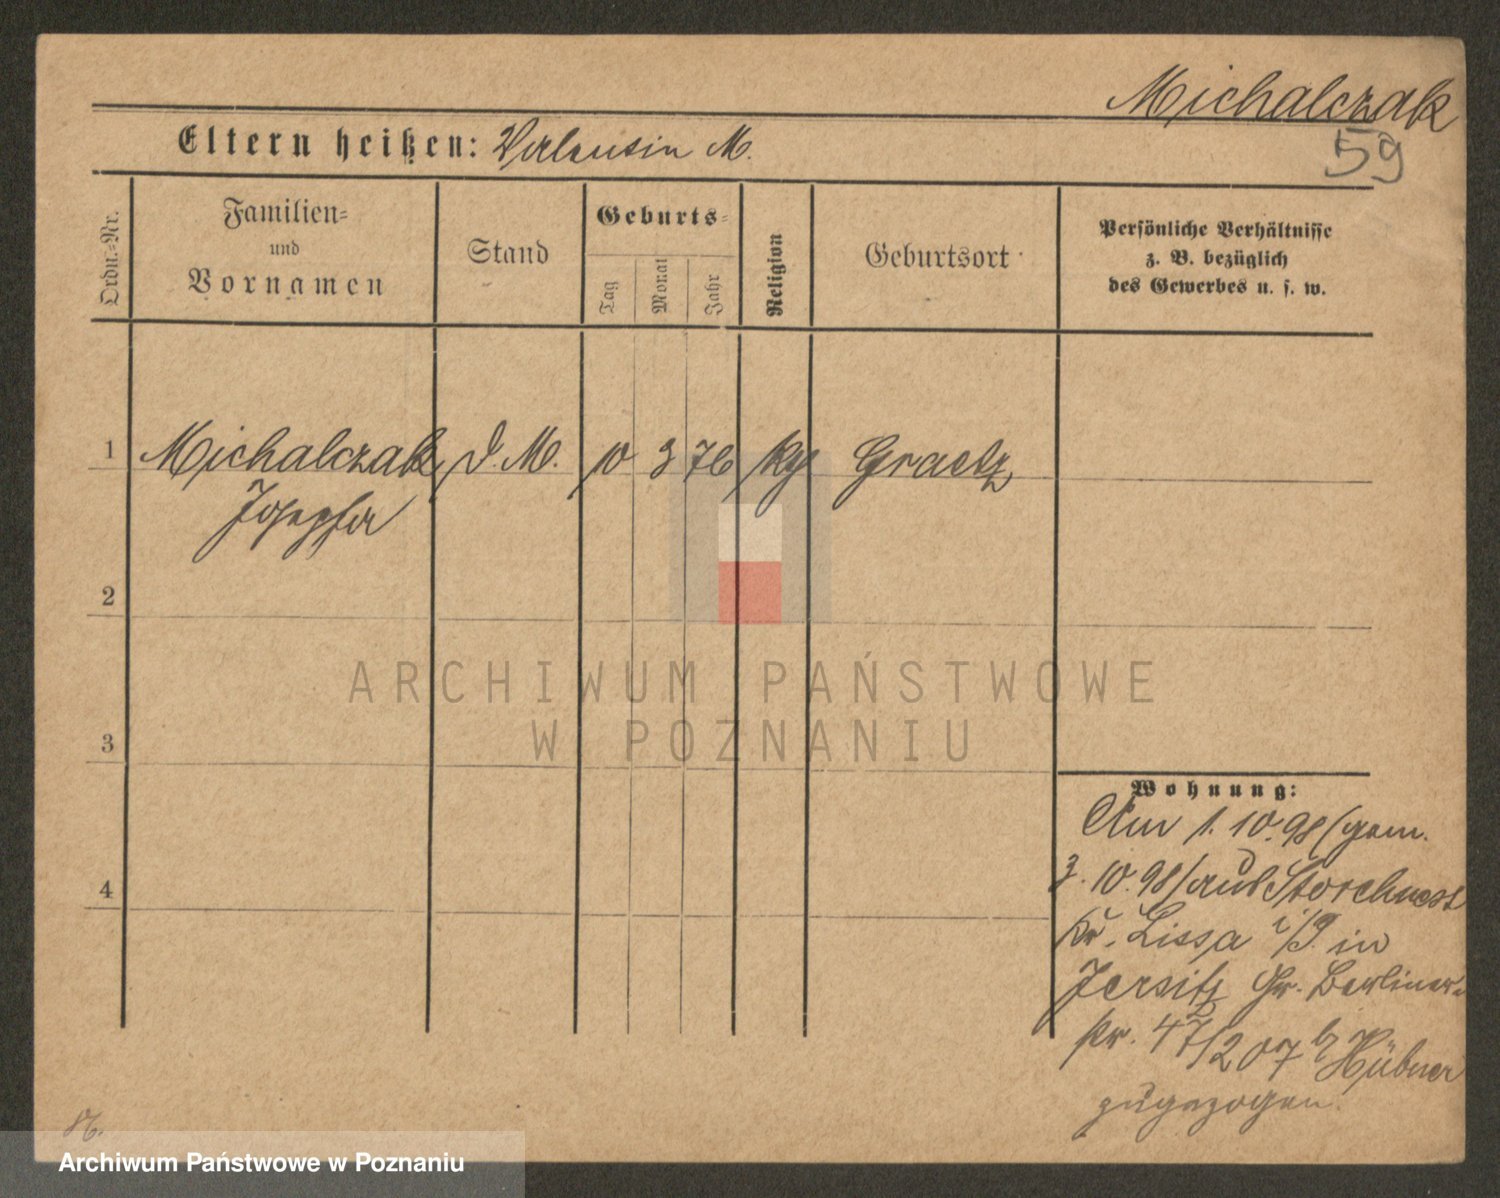 Michalczak
59
Eltern heißen: Valentin M.
Ordn.-Nr.
Familien-
und
Vornamen
Stand
Geburts-
Tag
Monat
Jahr
Religion
Geburtsort
Persönliche Verhältnisse
z. B. bezüglich
des Gewerbes u. s. w.
1 Michalczak, D. M. 10 3 76 Graetz
Josepha
2
3
4
ARCHIWUM PAŃSTWOWE
W POZNANIU
Wohnung:
Am 1. 10. 98 (gem.
3. 10. 98) aus Storchnest
Kr. Lissa i/P. in
Jersitz Gr. Berliner-
str. 47/207 b/ Hübner
zugezogen.
Archiwum Państwowe w Poznaniu